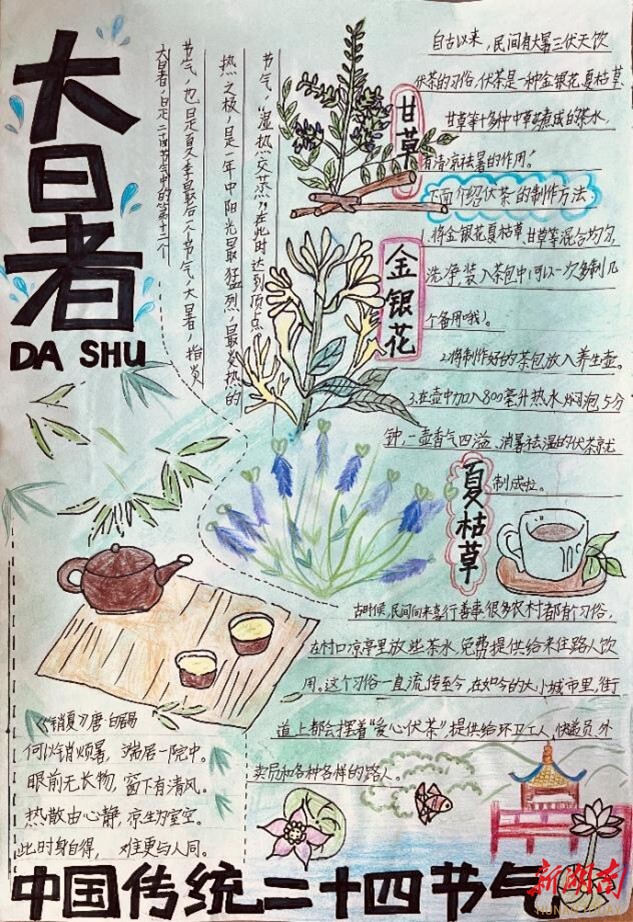 大暑
DA SHU
大暑,是二十四节气中的第十二个
节气,也是夏季最后一个节气,大暑,指炎
热之极,是一年中阳光最猛烈,最炎热的
节气,“湿热交蒸”在此时达到顶点。
自古以来,民间有大暑三伏天饮
伏茶的习俗,伏茶是一种金银花,夏枯草、
甘草等十多种中草药煮成的茶水,
有清凉祛暑的作用。”
下面介绍伏茶的制作方法
甘草
1.将金银花夏枯草、甘草等混合均匀,
洗净,装入茶包中(可以一次多制几
个备用哦)。
金银花
2.将制作好的茶包放入养生壶。
3.在壶中加入800毫升热水,焖泡5分
钟,一壶香气四溢、消暑祛湿的伏茶就
制成啦。
夏枯草
古时候,民间向来喜行善事,很多农村都有习俗,
在村口凉亭里放些茶水,免费提供给来往路人饮
用。这个习俗一直流传至今,在如今的大小城市里,街
道上都会摆着“爱心伏茶”,提供给环卫工人,快递员、外
卖员和各种各样的路人。
《销夏》唐·白居易
何以消烦暑,端居一院中。
眼前无长物,窗下有清风。
热散由心静,凉生为室空。
此时身自得,难更与人同。
中国传统二十四节气
新湖南